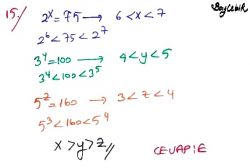 15.) 2^x = 75 → 6 < x < 7
2^6 < 75 < 2^7
3^y = 100 → 4 < y < 5
3^4 < 100 < 3^5
5^z = 160 → 3 < z < 4
5^3 < 160 < 5^4
x > y > z //
CEVAP: E